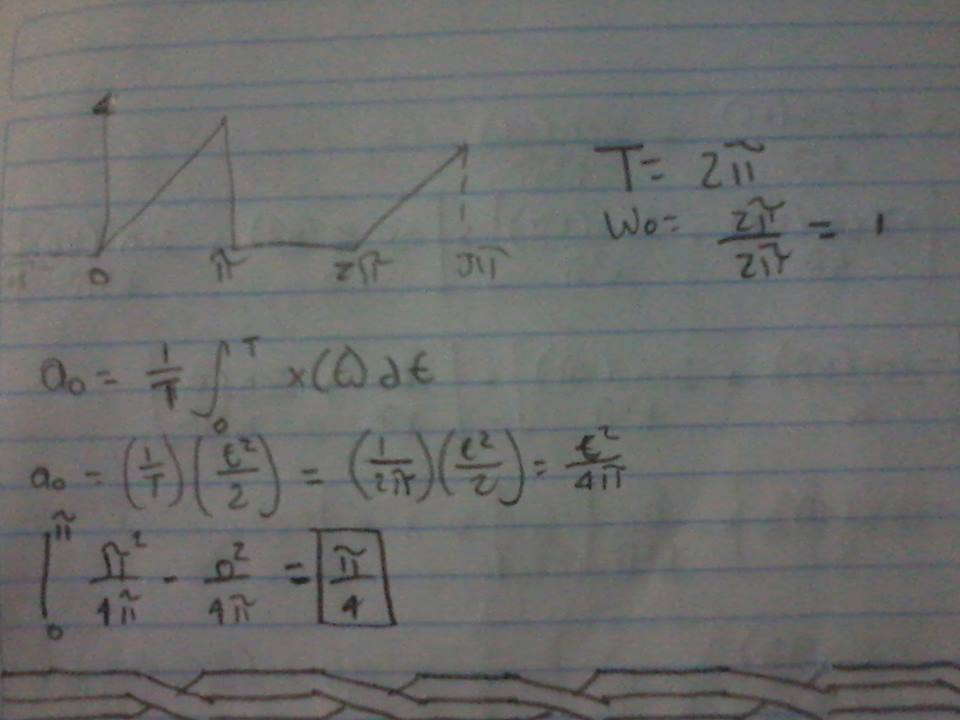 4
-π 0 π 2π 3π
T = 2π
W₀ = 2π/2π = 1
a₀ = 1/T ∫₀ᵀ x(t) dt
a₀ = (1/T)(t²/2) = (1/2π)(t²/2) = t²/4π
|₀^π π²/4π - 0²/4π = π/4